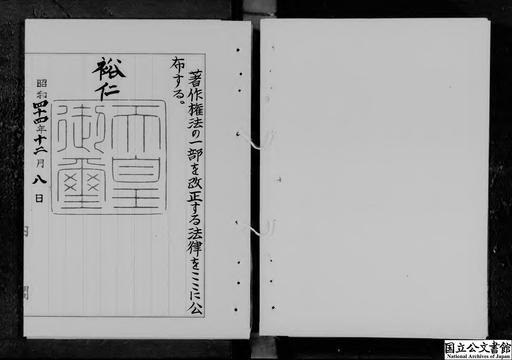 著作権法の一部を改正する法律をここに公
布する。
裕仁
天皇
御璽
昭和四十四年十二月八日
国立公文書館
National Archives of Japan